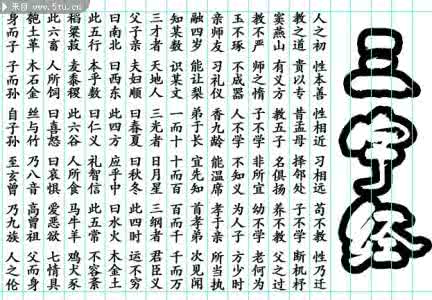 来自 www.5tu.cn
三字经
人之初 性本善 性相近 习相远 苟不教 性乃迁
教之道 贵以专 昔孟母 择邻处 子不学 断机杼
窦燕山 有义方 教五子 名俱扬 养不教 父之过
教不严 师之惰 子不学 非所宜 幼不学 老何为
玉不琢 不成器 人不学 不知义 为人子 方少时
亲师友 习礼仪 香九龄 能温席 孝于亲 所当执
融四岁 能让梨 弟于长 宜先知 首孝弟 次见闻
知某数 识某文 一而十 十而百 百而千 千而万
三才者 天地人 三光者 日月星 三纲者 君臣义
父子亲 夫妇顺 曰春夏 曰秋冬 此四时 运不穷
曰南北 曰西东 此四方 应乎中 曰水火 木金土
此五行 本乎数 曰仁义 礼智信 此五常 不容紊
稻粱菽 麦黍稷 此六谷 人所食 马牛羊 鸡犬豕
此六畜 人所饲 曰喜怒 曰哀惧 爱恶欲 七情具
匏土革 木石金 丝与竹 乃八音 高曾祖 父而身
身而子 子而孙 自子孙 至玄曾 乃九族 人之伦